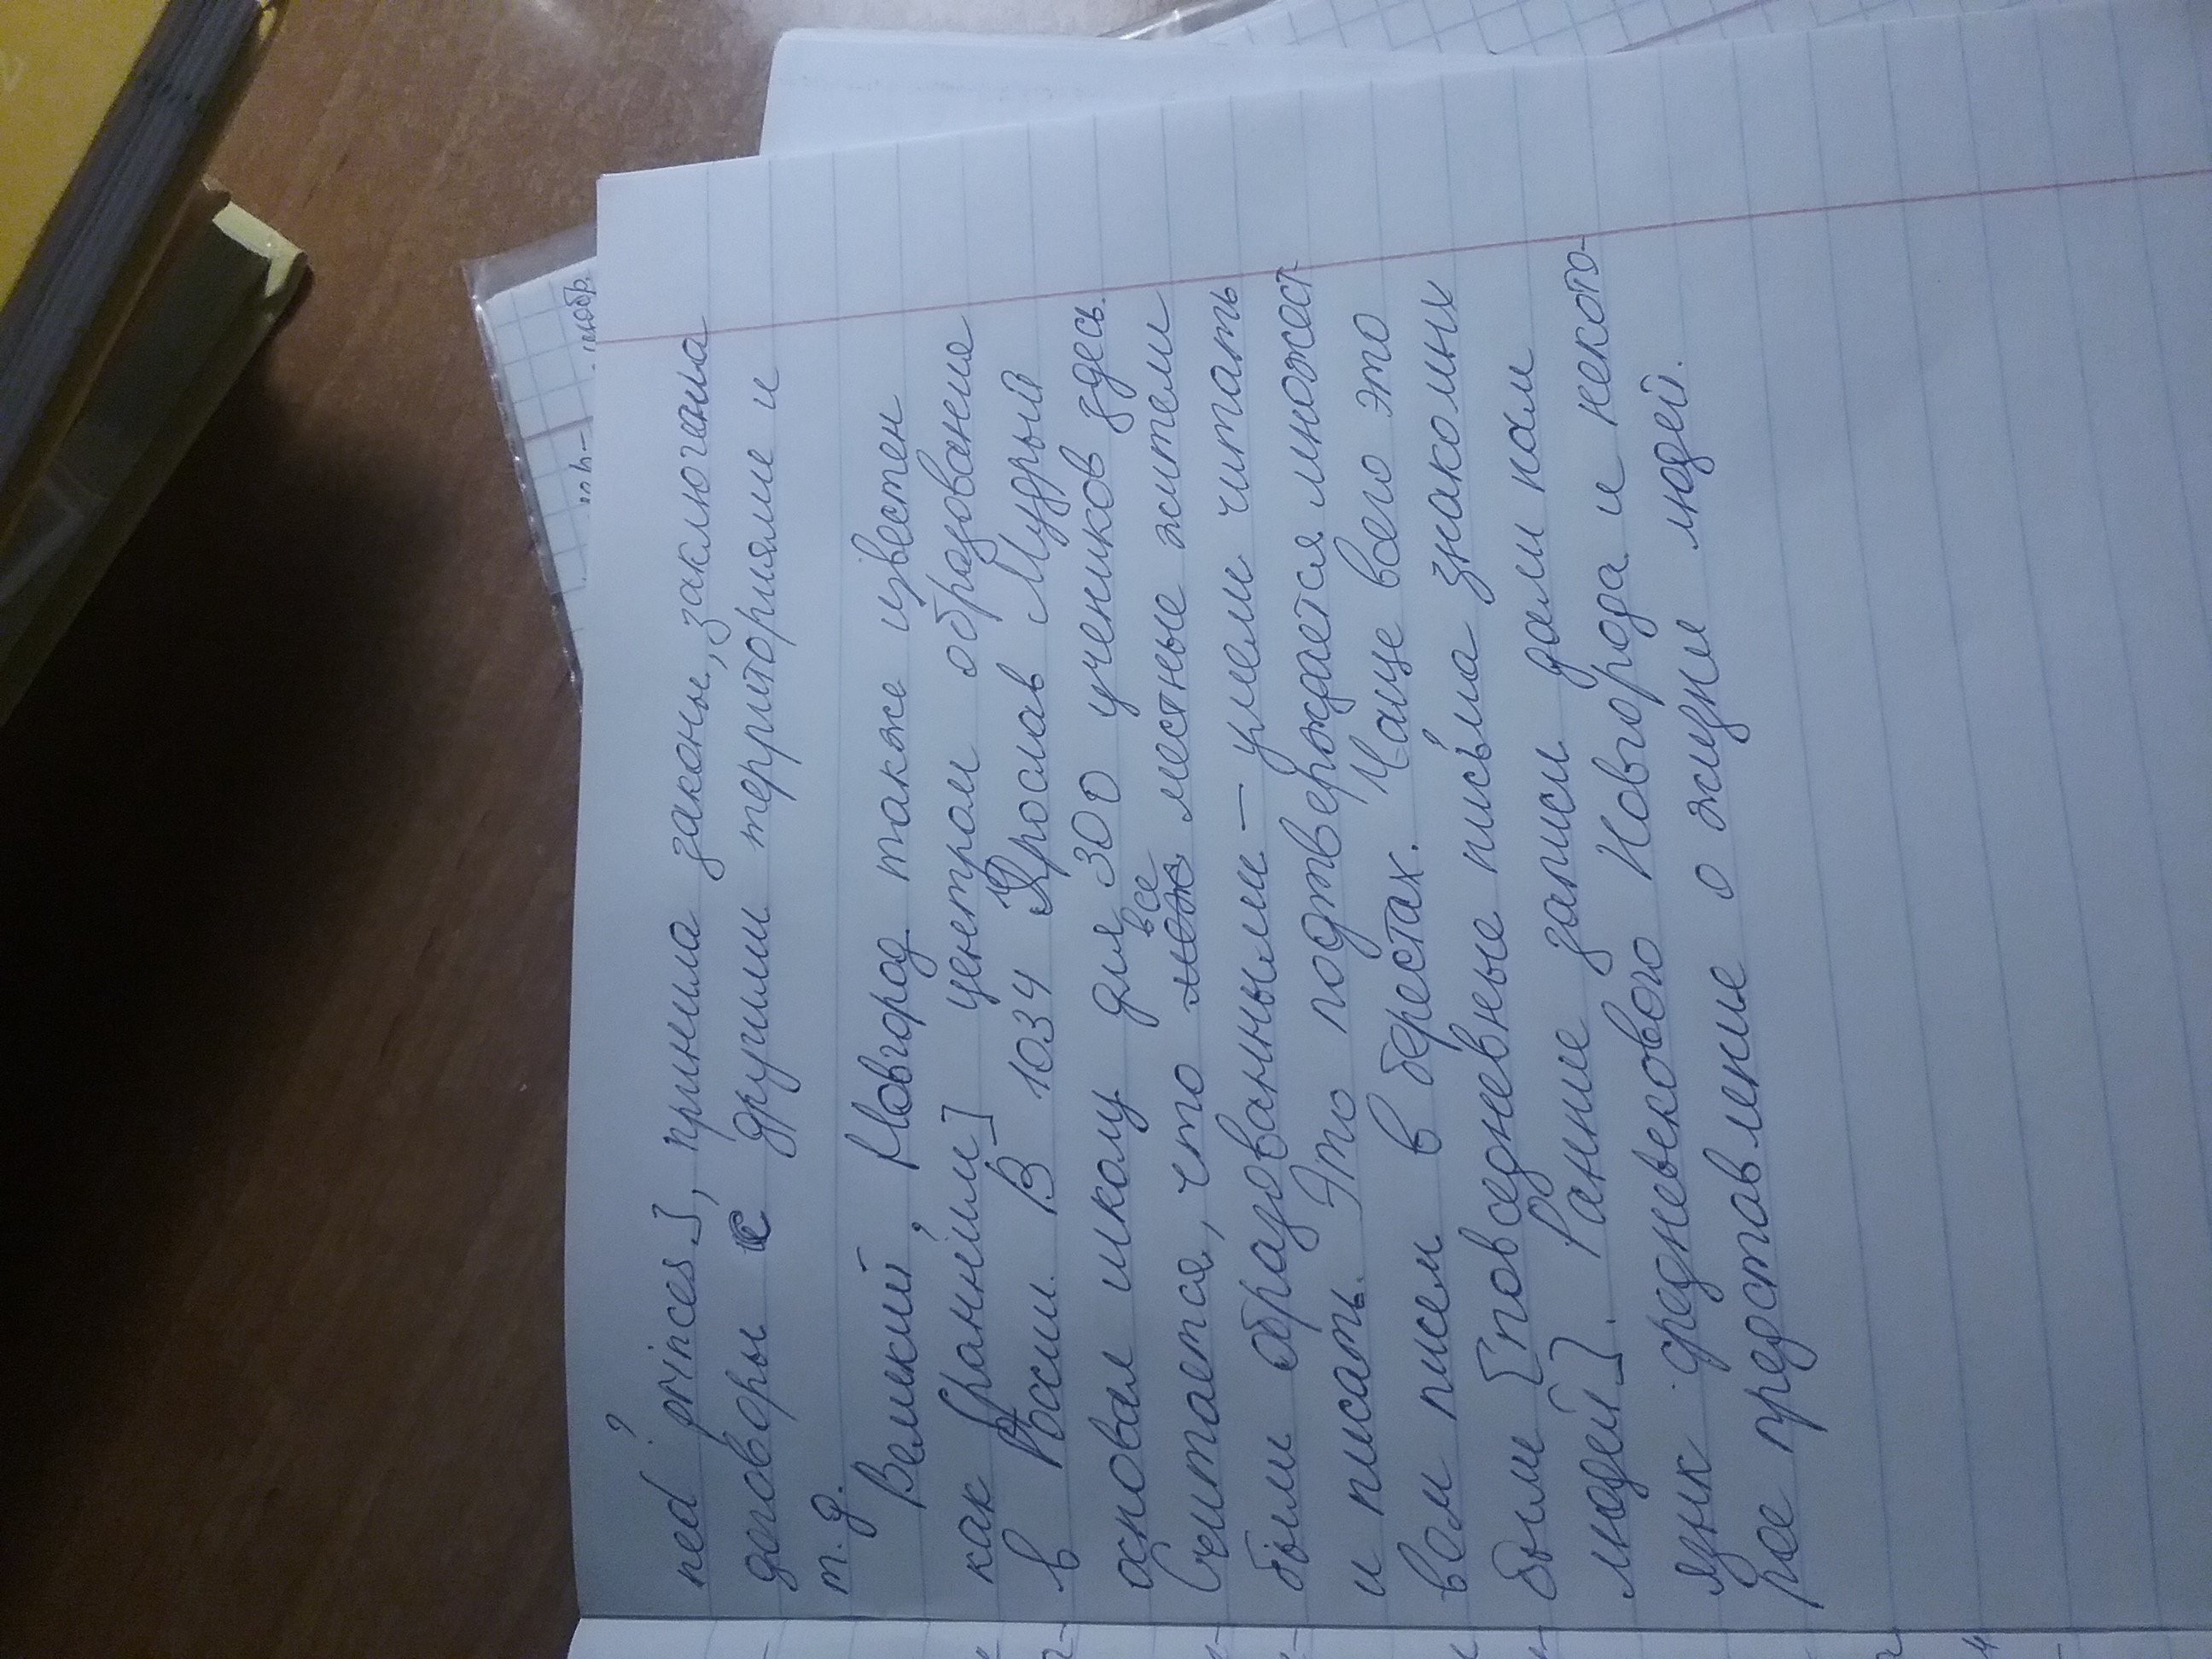 ned princes?], приняла законы, заключала
договоры с другими территориями и
т. д.
Великий, Новгород также известен
как [ранним] центром образования
в России. В 1034 Ярослав Мудрый
основал школу для 300 учеников здесь.
Считается, что все местные жители
были образованными – умели читать
и писать. Это подтверждается множест
вом писем в берестах. Чаще всего это
были [повседневные письма знакомых
людей]. Ранние записи дали нам
язык средневекового Новгорода и некото-
рое представление о жизни людей.